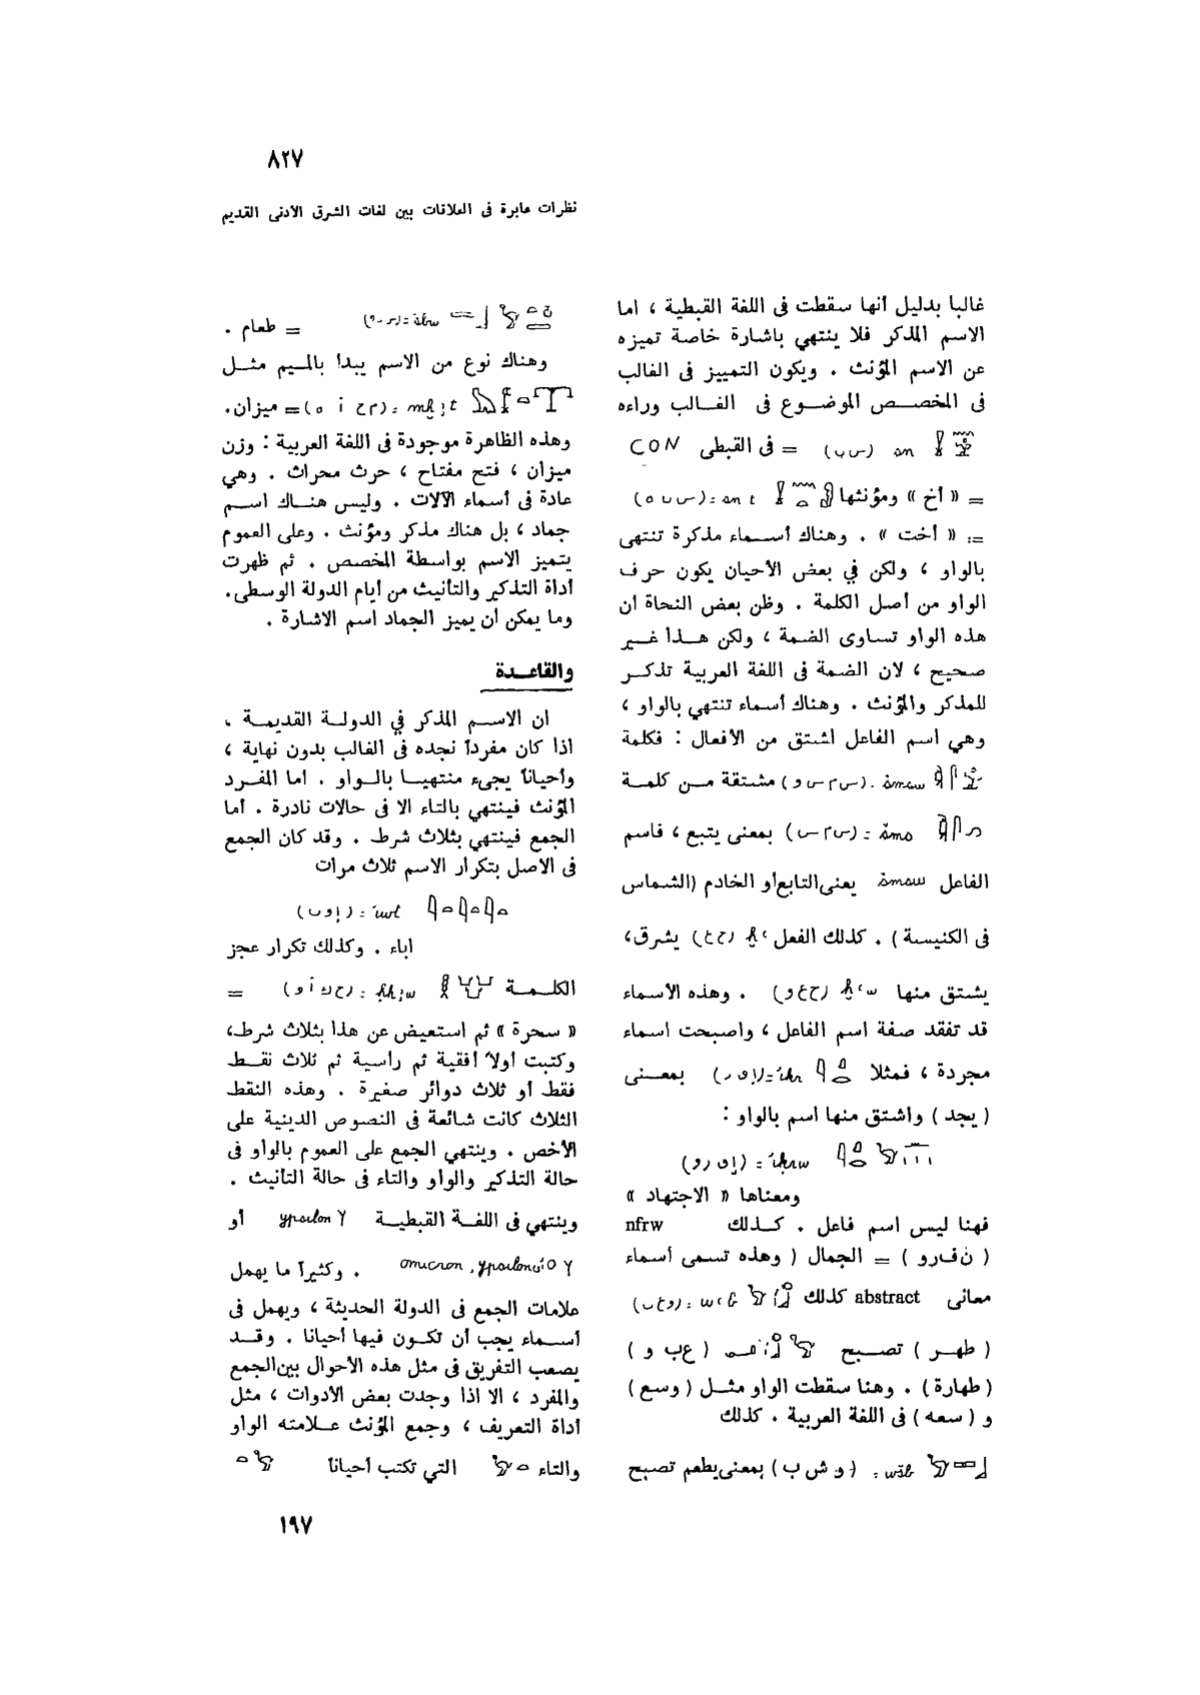 ٨٢٧
نظرات عابرة فى العلاقات بين لغات الشرق الأدنى القديم
غالبا بدليل أنها سقطت فى اللغة القبطية ، اما
الاسم المذكر فلا ينتهي باشارة خاصة تميزه
عن الاسم المؤنث . ويكون التمييز فى الغالب
فى المخصص الموضوع فى الغالب وراءه
sn (س ن) = فى القبطى CON
= « أخ » ومؤنثها snt =
=: « أخت » . وهناك أسماء مذكرة تنتهى
بالواو ، ولكن في بعض الأحيان يكون حرف
الواو من أصل الكلمة . وظن بعض النحاة ان
هذه الواو تساوى الضمة ، ولكن هذا غير
صحيح ، لان الضمة فى اللغة العربية تذكر
للمذكر والمؤنث . وهناك أسماء تنتهي بالواو ،
وهي اسم الفاعل اشتق من الأفعال : فكلمة
(س م س و) مشتقة من كلمة
(س م س) بمعنى يتبع ، فاسم
الفاعل يعنى التابع أو الخادم (الشماس
فى الكنيسة) . كذلك الفعل (ح ع) يشرق،
يشتق منها (ح ع و) . وهذه الاسماء
قد تفقد صفة اسم الفاعل ، واصبحت اسماء
مجردة ، فمثلا بمعنى
( يجد ) واشتق منها اسم بالواو :
(إ ق ر و)
ومعناها « الاجتهاد »
فهنا ليس اسم فاعل . كذلك nfrw
( ن ف ر و ) = الجمال ( وهذه تسمى أسماء
معانى abstract كذلك (و ع ب)
( طهر ) تصبح ( ع ب و )
( طهارة ) . وهنا سقطت الواو مثل ( وسع )
و ( سعه ) فى اللغة العربية . كذلك
wšb : ( و ش ب ) بمعنى يطعم تصبح
= طعام .
وهناك نوع من الاسم يبدأ بالميم مثل
= ميزان.
وهذه الظاهرة موجودة فى اللغة العربية : وزن
ميزان ، فتح مفتاح ، حرث محراث . وهي
عادة فى أسماء الآلات . وليس هناك اسم
جماد ، بل هناك مذكر ومؤنث . وعلى العموم
يتميز الاسم بواسطة المخصص . ثم ظهرت
أداة التذكير والتأنيث من أيام الدولة الوسطى.
وما يمكن ان يميز الجماد اسم الاشارة .
والقاعدة
ان الاسم المذكر في الدولة القديمة ،
اذا كان مفرداً نجده فى الغالب بدون نهاية ،
وأحياناً يجىء منتهيا بالواو . اما المفرد
المؤنث فينتهي بالتاء الا فى حالات نادرة . أما
الجمع فينتهي بثلاث شرط . وقد كان الجمع
فى الاصل بتكرار الاسم ثلاث مرات
اباء . وكذلك تكرار عجز
الكلمة =
« سحرة » ثم استعيض عن هذا بثلاث شرط،
وكتبت أولاً أفقية ثم راسية ثم ثلاث نقط
فقط أو ثلاث دوائر صغيرة . وهذه النقط
الثلاث كانت شائعة فى النصوص الدينية على
الأخص . وينتهي الجمع على العموم بالواو فى
حالة التذكير والواو والتاء فى حالة التأنيث .
وينتهى فى اللغة القبطية ypsilon Y أو
omicron, ypsilon . وكثيراً ما يهمل
علامات الجمع فى الدولة الحديثة ، ويهمل فى
أسماء يجب أن تكون فيها أحيانا . وقد
يصعب التفريق فى مثل هذه الأحوال بين الجمع
والمفرد ، الا اذا وجدت بعض الأدوات ، مثل
أداة التعريف ، وجمع المؤنث علامته الواو
والتاء التي تكتب أحياناً
١٩٧